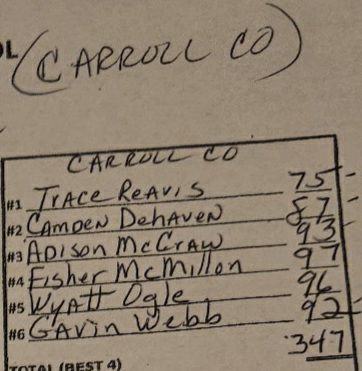 OL
(CARROLL CO)
CARROLL CO
#1 Trace Reavis 75
#2 CAMDEN DeHAVEN 87
#3 ADISON McCRAW 93
#4 Fisher McMillon 97
#5 Wyatt Ogle 96
#6 GAVin Webb 92
347
TOTAL (BEST 4)